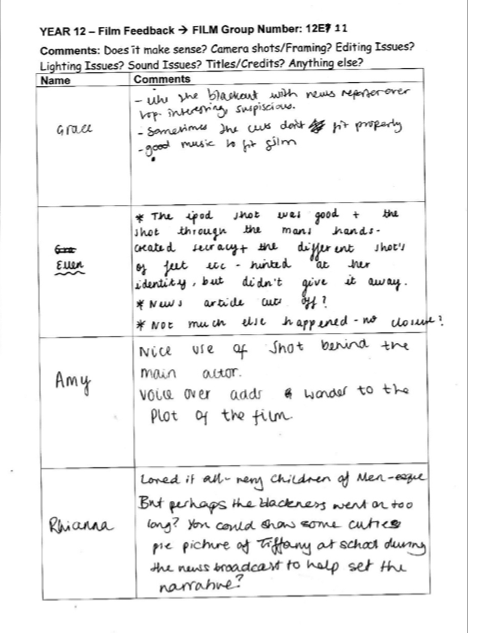 YEAR 12 – Film Feedback → FILM Group Number: 12E7 11
Comments: Does it make sense? Camera shots/Framing? Editing Issues?
Lighting Issues? Sound Issues? Titles/Credits? Anything else?
Name Comments
Grace
- like the blackout with news reporter over
top. interesting, suspiscious.
- Sometimes the cuts don't fit properly
- good music to fit film
Ellen
* The ipod shot was good + the
shot through the mans hands -
created secracy + the different shot's
of feet ecc - hinted at her
identity, but didn't give it away.
* News article cuts off?
* Not much else happened - no closure?
Amy
Nice use of shot behind the
main actor.
Voice over adds wonder to the
Plot of the film
Rhianna
Loved it all - very Children of Men-esque
But perhaps the blackness went on too
long? You could show some cutie
pie picture of Tiffany at school during
the news broadcast to help set the
narrative?